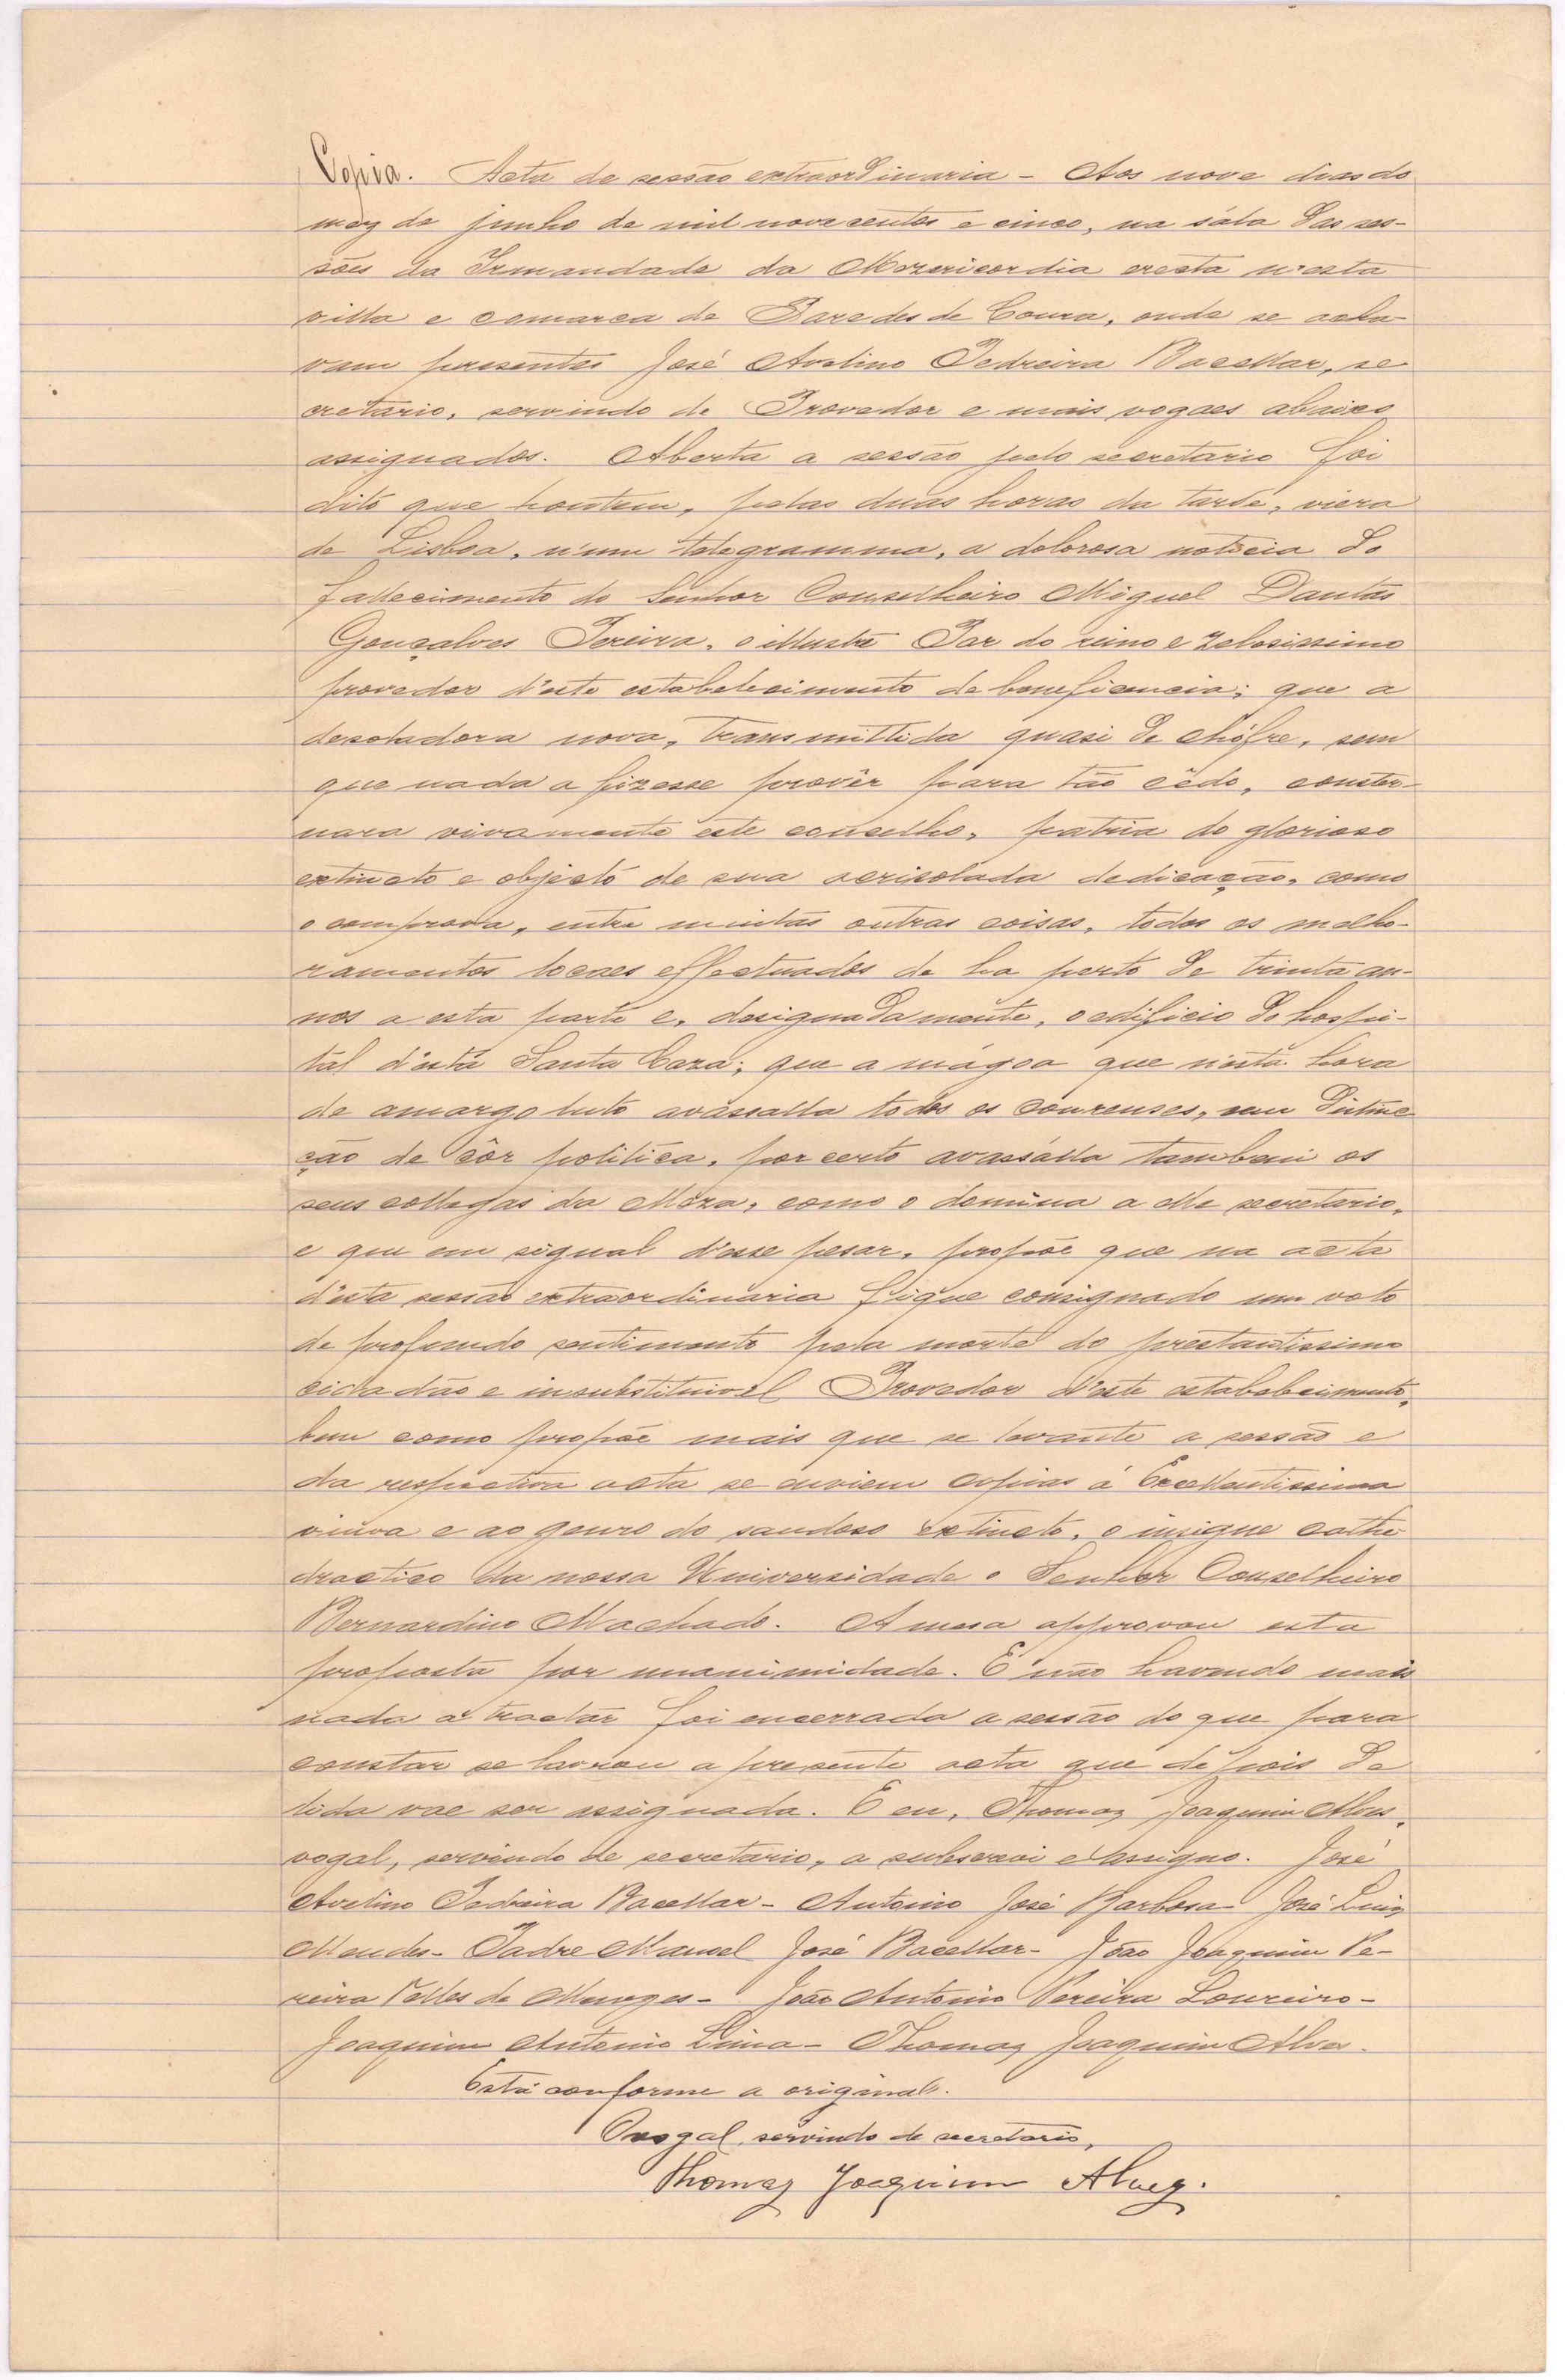 Copia. Acta de sessão extraordinaria - Aos nove dias do
mez de junho de mil nove centos e cinco, na sála das ses-
sões da Irmandade da Mizericordia erecta n'esta
villa e comarca de Paredes de Coura, onde se acha-
vam presentes José Avelino Pedreira Bacellar, se-
cretario, servindo de Provedor e mais vogaes abaixo
assignados. Aberta a sessão pelo secretario foi
dito que hontem, pelas duas horas da tarde, viera
de Lisboa, n'um telegramma, a dolorosa noticia do
fallecimento do Senhor Conselheiro Miguel Dantas
Gonçalves Pereira, o illustre Par do reino e zelosissimo
provedor d'este estabelecimento de beneficencia; que a
desoladora nova, transmittida quasi de chófre, sem
que nada a fizesse provêr para tão cêdo, conster-
nara vivamente este concelho, patria do glorioso
extincto e objecto de sua acrisolada dedicação, como
o comprova, entre muitas outras coisas, todos os melho-
ramentos locaes effectuados de ha perto de trinta an-
nos a esta parte e, designadamente, o edificio do hospi-
tal d'esta Santa Caza; que a mágoa que n'esta hora
de amargo luto avassalla todos os courenses, sem distinc-
ção de côr politica, por certo avassalla tambem os
seus collegas da Meza, como o domina a elle secretario,
e que em signal d'esse pesar, propõe que na acta
d'esta sessão extraordinaria fique consignado um voto
de profundo sentimento pela morte do prestantissimo
cidadão e insubstituivel Provedor d'este estabelecimento,
bem como propõe mais que se levante a sessão e
da respectiva acta se enviem copias á Excellentissima
viuva e ao genro do saudoso extincto, o insigne cathe-
dractico da nossa Universidade o Senhor Conselheiro
Bernardino Machado. A mesa approvou esta
proposta por unanimidade. E não havendo mais
nada a tractar foi encerrada a sessão do que para
constar se lavrou a presente acta que depois de
lida vae ser assignada. E eu, Thomaz Joaquim Alves,
vogal, servindo de secretario, a subscrevi e assigno. José
Avelino Pedreira Bacellar - Antonio José Barbosa - José Luiz
Mendes - Padre Manoel José Bacellar - João Joaquim Pe-
reira Telles de Menezes - João Antonio Pereira Loureiro -
Joaquim Antonio Lima - Thomaz Joaquim Alves.
Está conforme a original.
O vogal, servindo de secretario,
Thomaz Joaquim Alvez.